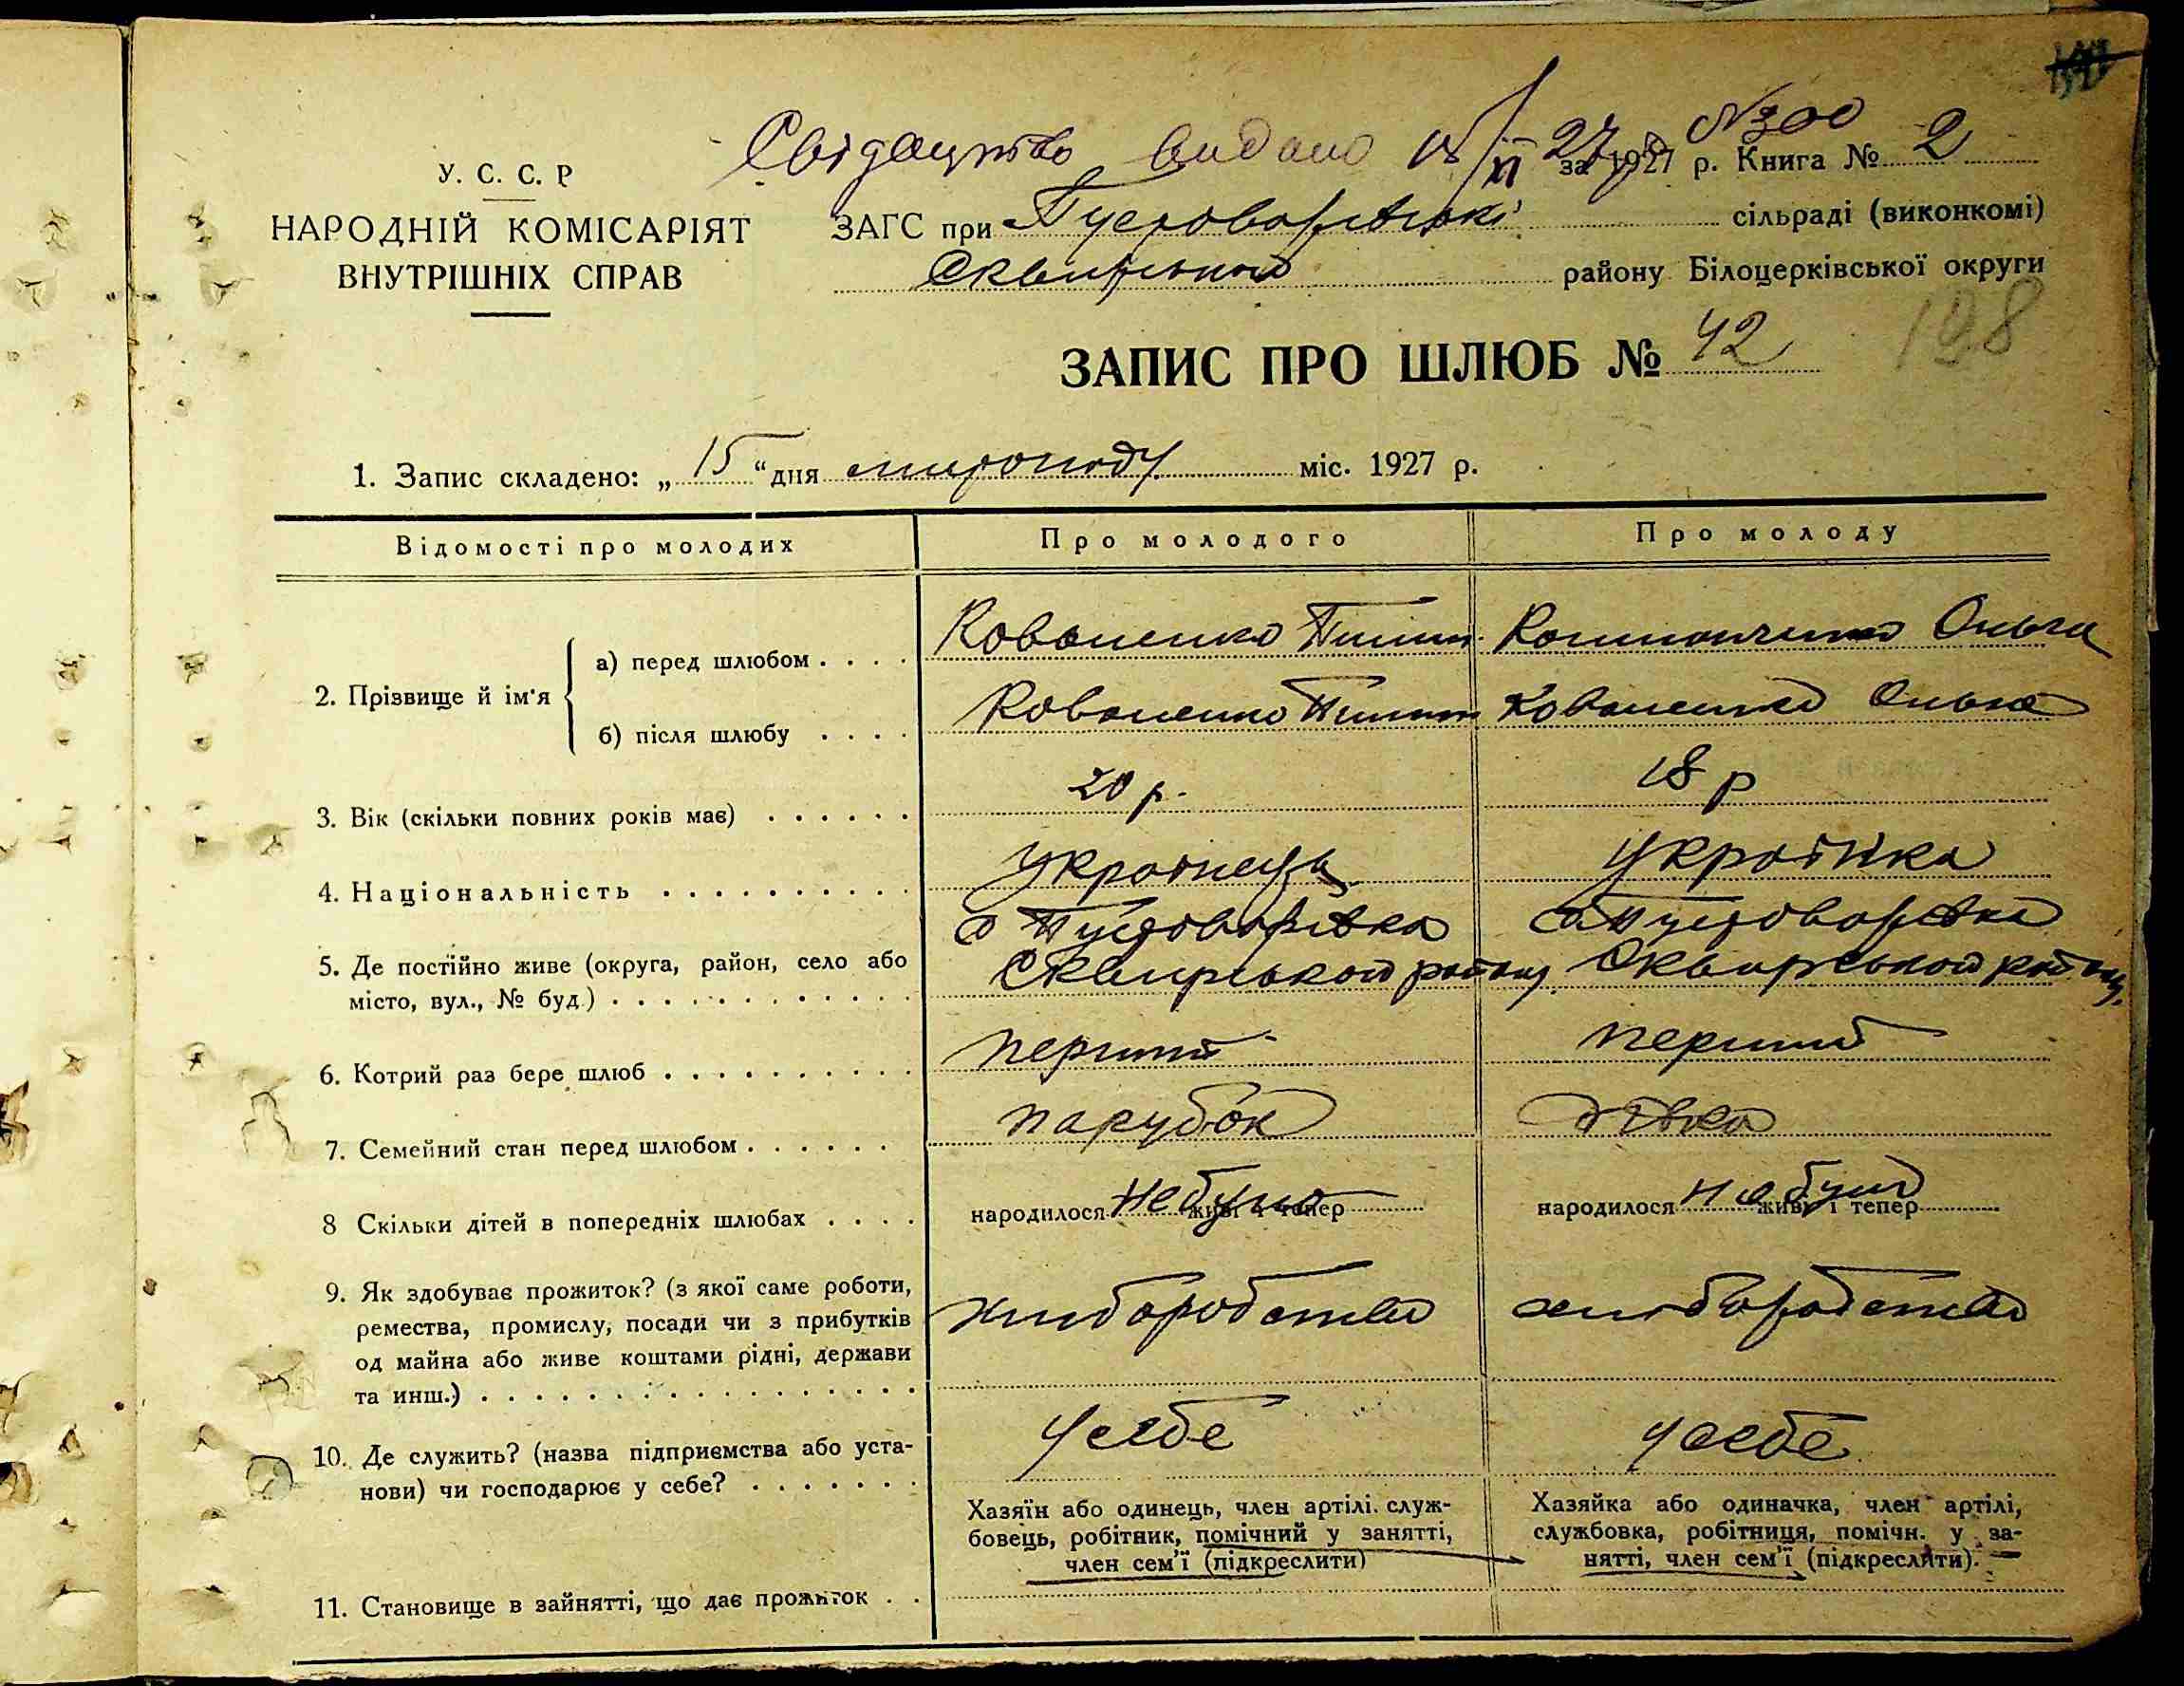 Свідоцтво видано 15/XI 27 р №300
У. С. С. Р
за 1927 р. Книга № 2
НАРОДНІЙ КОМІСАРІЯТ
ВНУТРІШНІХ СПРАВ
ЗАГС при Пустоварівські сільраді (виконкомі)
Сквирського району Білоцерківської округи
198
ЗАПИС ПРО ШЛЮБ № 42
1. Запис складено: „ 15 “ дня листопаду міс. 1927 р.
Відомості про молодих
Про молодого
Про молоду
2. Прізвище й ім'я
а) перед шлюбом . . . .
Коваленко Пилип
Ольга
б) після шлюбу . . . .
Коваленко Пилип
Коваленко Ольга
3. Вік (скільки повних років має) . . . . . .
20 р.
18 р
4. Національність . . . . . . . . . .
Українець
Українка
5. Де постійно живе (округа, район, село або
місто, вул., № буд.) . . . . . . . . . . . .
с Пустоварівка
Сквирського району
с. Пустоварівка
Сквирського району
6. Котрий раз бере шлюб . . . . . . . . . .
перший
перший
7. Семейний стан перед шлюбом . . . . . .
парубок
дівка
8 Скільки дітей в попередніх шлюбах . . . .
народилося не було живі і тепер
народилося не було живі і тепер
9. Як здобуває прожиток? (з якої саме роботи,
ремества, промислу, посади чи з прибутків
од майна або живе коштами рідні, держави
та инш.) . . . . . . . . . . . . . . . . .
хліборобство
хліборобство
10. Де служить? (назва підприємства або уста-
нови) чи господарює у себе? . . . . . . .
У себе
у себе
11. Становище в зайнятті, що дає прожиток . .
Хазяїн або одинець, член артілі. служ-
бовець, робітник, помічний у занятті,
член сем'ї (підкреслити)
Хазяйка або одиначка, член артілі,
службовка, робітниця, помічн. у за-
нятті, член сем'ї (підкреслити).